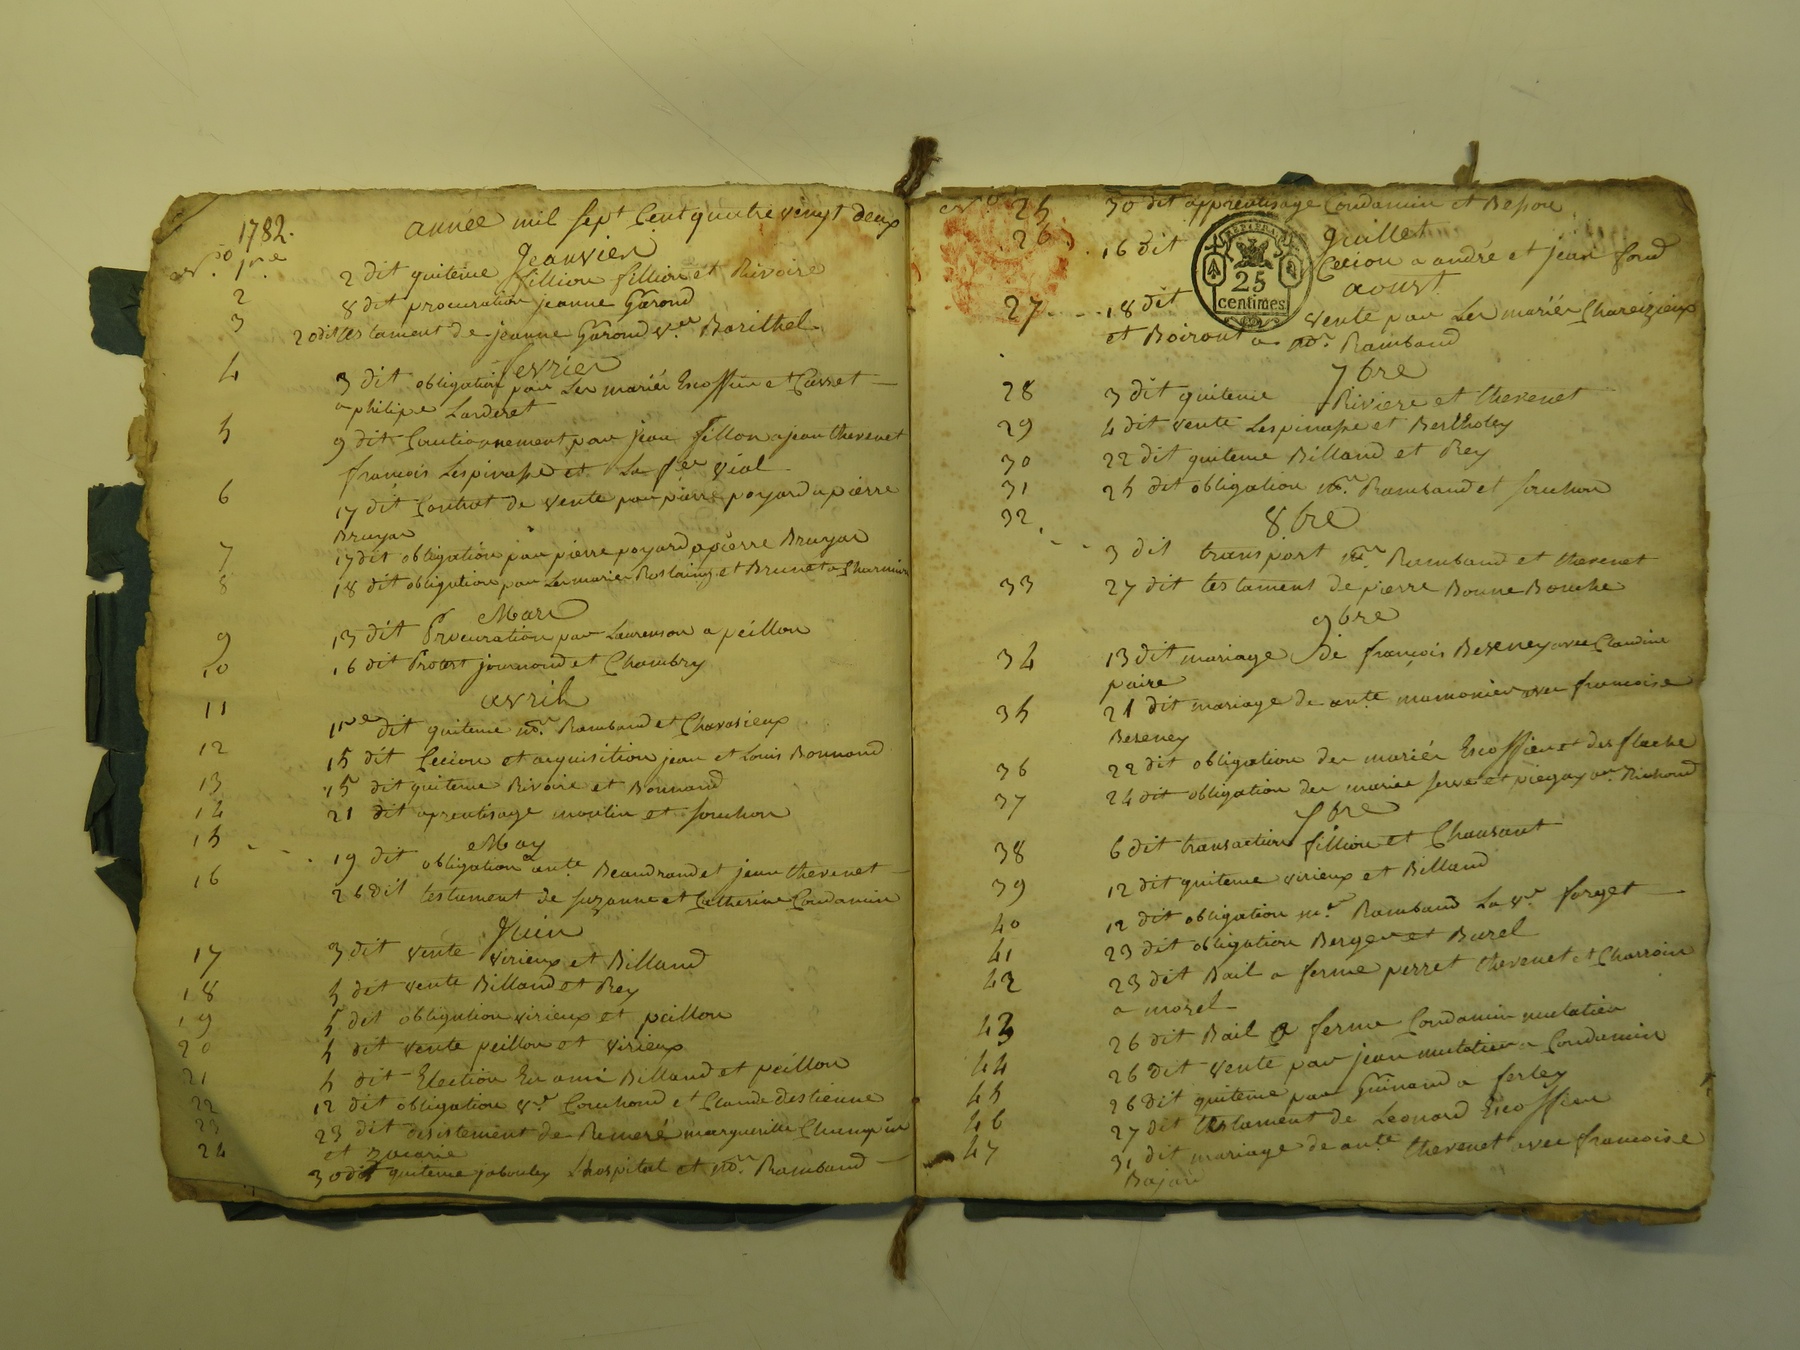 1782.
année mil sept Cent quatre vingt deux
Jeanvier
N.º 1re 2 dit quitence fillion fillion et Rivoire
2 8 dit procuration jeanne Garond
3 20 dit testament de jeanne Garond Barithel
fevrier
4 3 dit obligation par Les mariés Escoffier et Carret
a philipe Larderet
5 9 dit Cautionnement par jean fillon a jean thevenet
françois Lespinasse et La vial
6 17 dit Contrat de vente par pierre poyard a pierre
Bruyas
7 17 dit obligation par pierre poyard a pierre Bruyas
8 18 dit obligation par Les mariés Roslaing et Brunet a
Mars
9 13 dit Procuration par Laurenson a peillon
10 16 dit Protest journoud et Chambry
avril
11 1re dit quitence mr. Rambaud et Chavasieux
12 15 dit Cecion et acquisition jean et Louis Bonnand
13 15 dit quitence Rivoire et Bonnand
14 21 dit aprentisage moulin et souchon
May
15 19 dit obligation ante. Beaudrand et jean thevenet
16 26 dit testament de suzanne et Catherine Condamin
Juin
17 3 dit vente virieux et Billand
18 5 dit vente Billand et Rey
19 5 dit obligation virieux et peillon
20 5 dit vente peillon et virieux
21 5 dit Election En ami Billand et peillon
22 12 dit obligation Couchoud et Claude destienne
23 23 dit desistement de Remeré margueritte
et zacarie
24 30 dit quitence jabouley Lhospital et mr. Rambaud
N.º 25 30 dit apprentisage Condamin et Besson
Juillet
26 16 dit Cecion a andré et jean fond
REP. FRA.
25
centimes
aoust
27 18 dit vente par Les mariés Chareizieux
et Boiront a mr. Rambaud
7bre
28 3 dit quitence Riviere et thevenet
29 4 dit vente Lespinasse et Bertholey
30 22 dit quitence Billand et Rey
31 25 dit obligation mr. Rambaud et souchon
32 8bre
3 dit transport mr. Rambaud et thevenet
33 27 dit testament de pierre Bonne Bouche
9bre
34 13 dit mariage de françois Beseney avec Claudine
paire
35 21 dit mariage de ante. mamonier avec francoise
Beseney
36 22 dit obligation des mariés Escoffier et des flache
37 24 dit obligation des mariés serve et piegay Richoud
Xbre
38 6 dit transaction fillion et Chausant
39 12 dit quitence virieux et Billand
40 12 dit obligation mr. Rambaud La ve forget
41 23 dit obligation Berger et Burel
42 23 dit Bail a ferme perret thevenet et Charroin
a morel
43 26 dit Bail a ferme Condamin mulatier
44 26 dit vente par jean mulatier a Condamin
45 26 dit quitence par Guinand a ferley
46 27 dit testament de Leonard Escoffier
47 31 dit mariage de ante. thevenet avec francoise